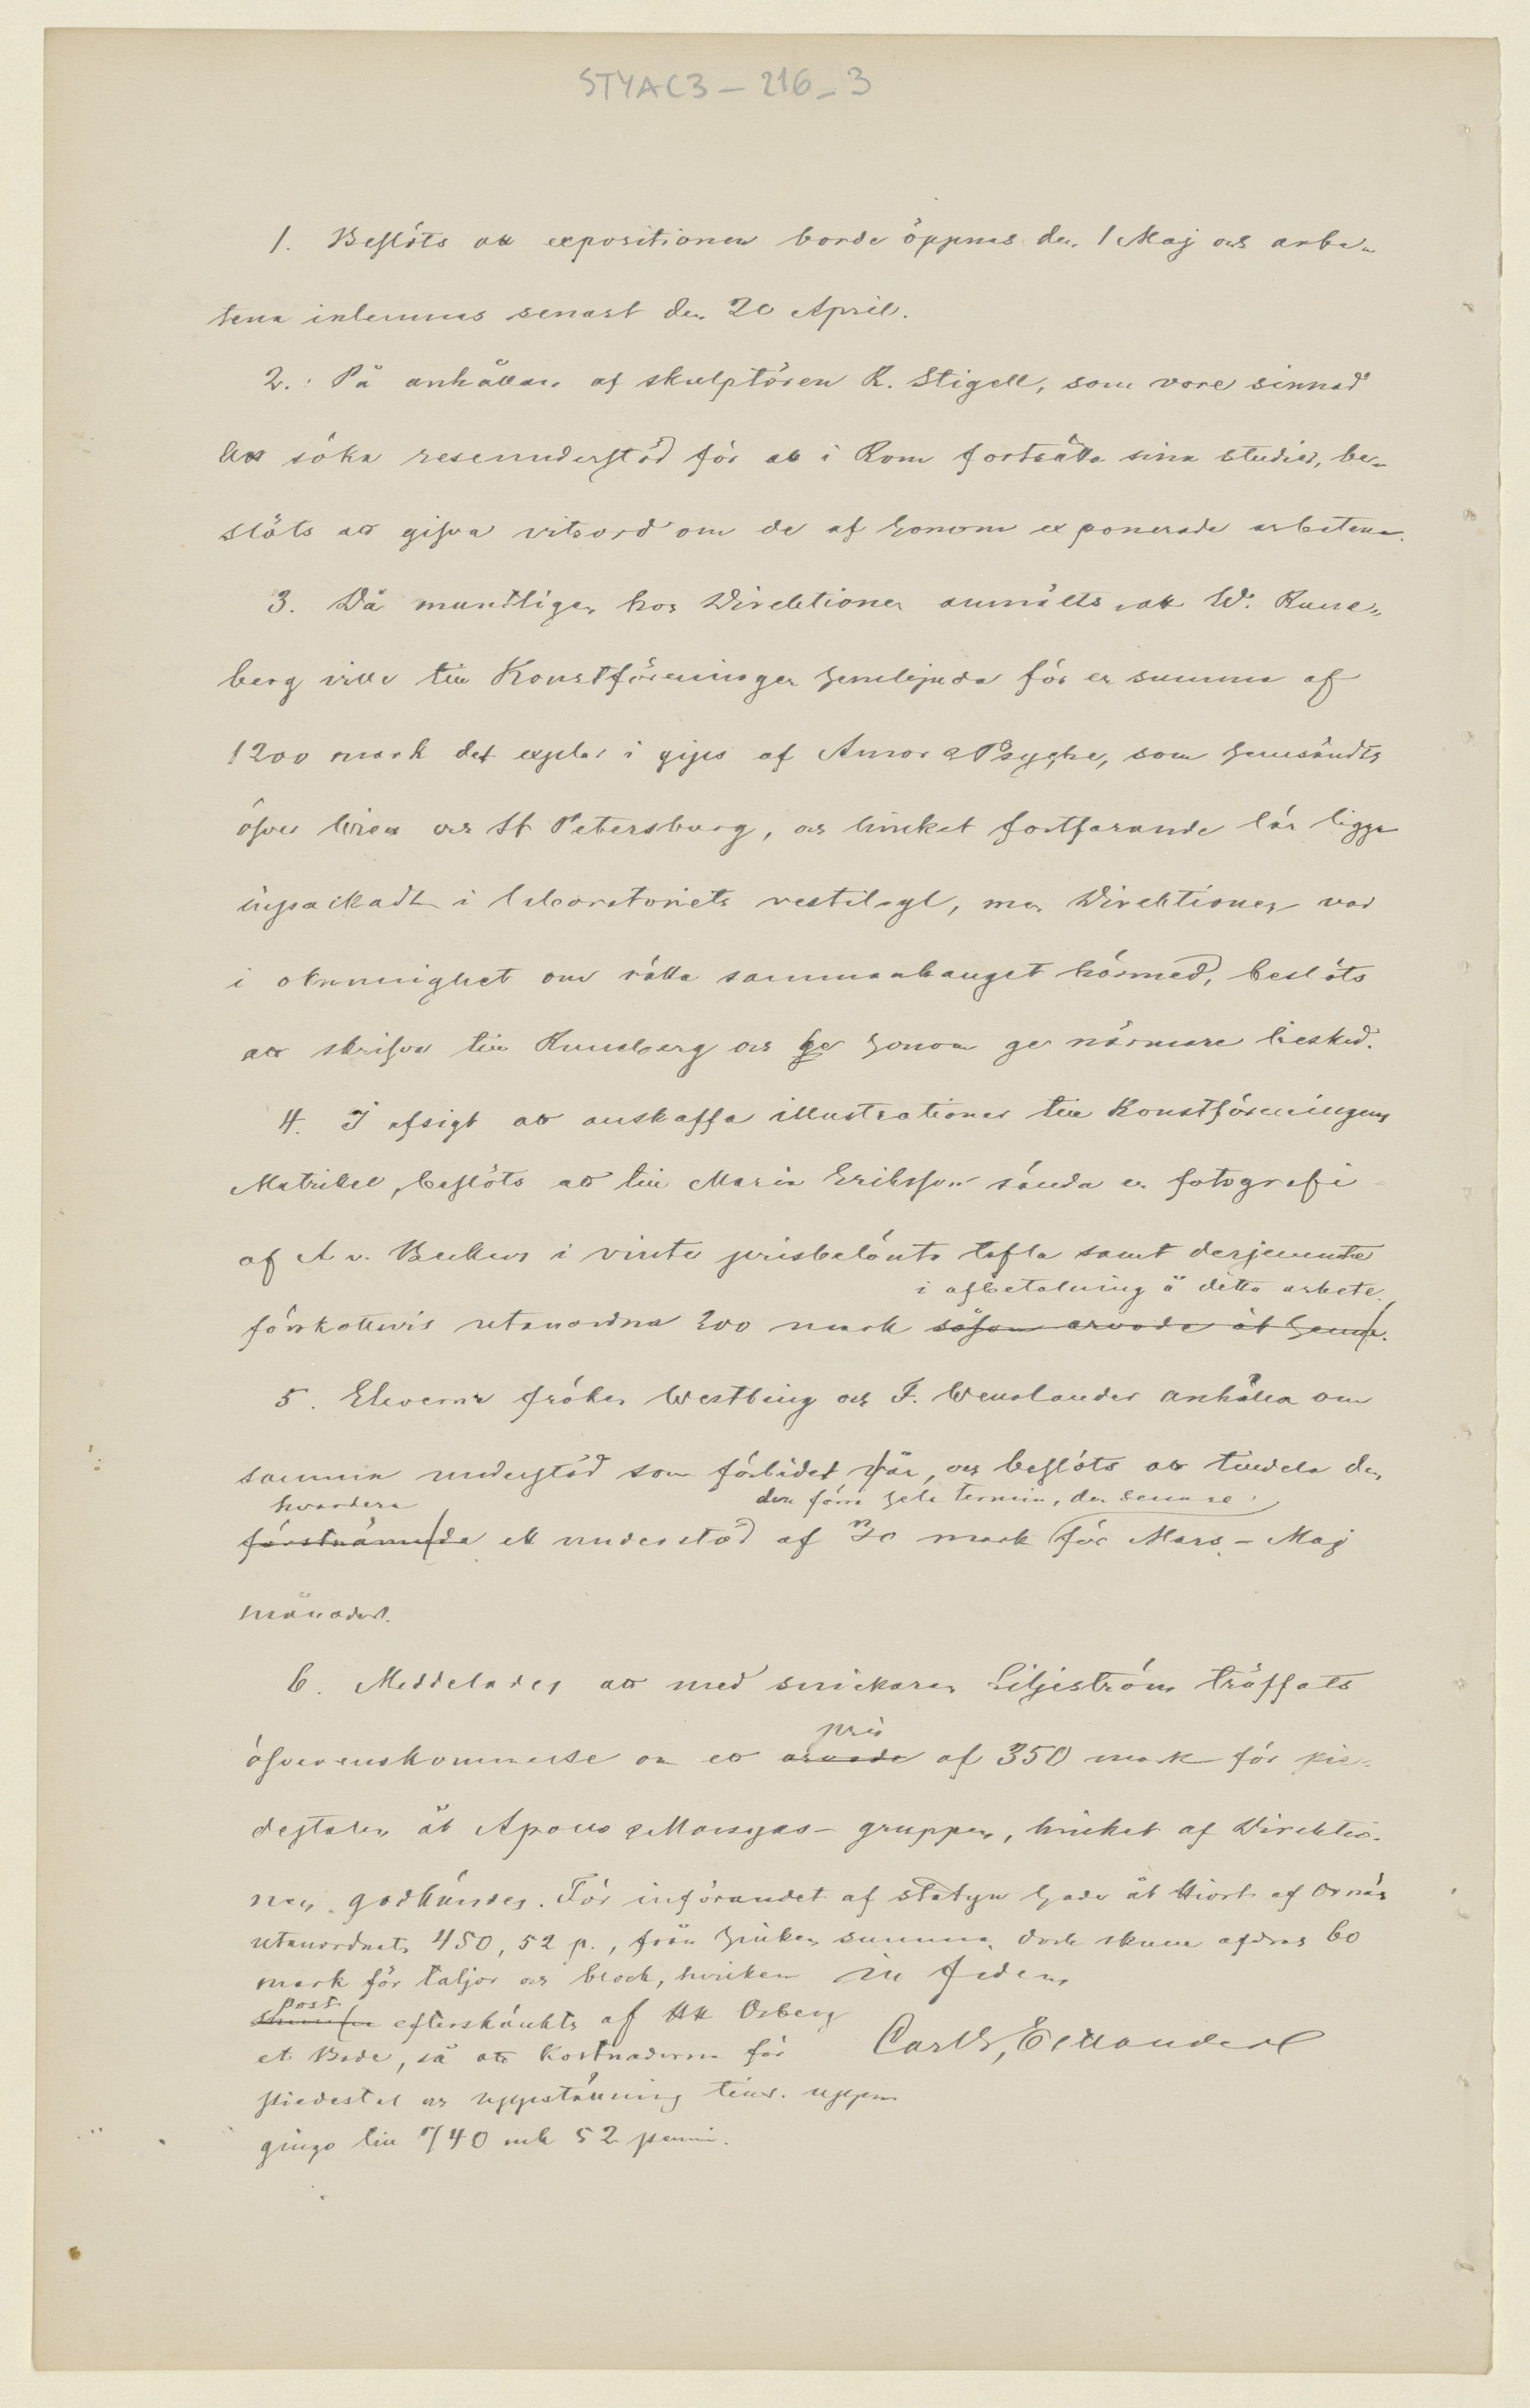 STYAC3 – 216_3
1. Beslöts att expositionen borde öppnas den 1 Maj och arbe-
tena inlemnas senast den 20 April.
2. På anhållan af skulptören R. Stigell, som vore sinnad
att söka reseunderstöd för att i Rom fortsätta sina studier, be-
slöts att gifva vitsord om de af honom exponerade arbetena.
3. Då muntligen hos Direktionen anmälts, att W. Rune-
berg ville till Konstföreningen hembjuda för en summa af
1200 mark det explar i gips af Amor & Psyche, som hemsändts
öfver Wien och St Petersburg, och hvilket fortfarande lär ligga
inpackadt i laboratoriets vestibyl, men Direktionen var
i okunnighet om rätta sammanhanget härmed, beslöts
att skrifva till Runeberg och be honom ge närmare besked.
4. I afsigt att anskaffa illustrationer till Konstföreningens
Matrikel, beslöts att till Maria Eriksson sända en fotografi
af A v. Beckers i vinter prisbelönta tafla samt derjemte
i afbetalning å detta arbete.
förskottsvis utanordna 200 mark såsom arvode åt henne.
5. Eleverna fröken Westling och F. Wenlander anhålla om
samma understöd som förlidet år, och beslöts att tilldela den
hvardera den förra hela termin, den senare
förstnämnda ett understöd af 70 mark för Mars – Maj
månader.
6. Meddelades att med snickaren Liljeström träffats
pris
öfverenskommelse om ett arvode af 350 mark för pie-
destalen åt Apollo & Marsyas-gruppen, hvilket af Direktio-
nen godkändes. För införandet af statyn hade åt Hiort af Ornäs
utanordnats 450, 52 p., från hvilken summa dock skulle afdras 60
mark för taljor och block, hvilken
post
summa efterskänkts af HH Osberg
et Bade, så att kostnaderna för
piedestal och uppställning tills. uppn
gingo till 740 mk 52 penni.
In fidem,
Carl G. Estlander